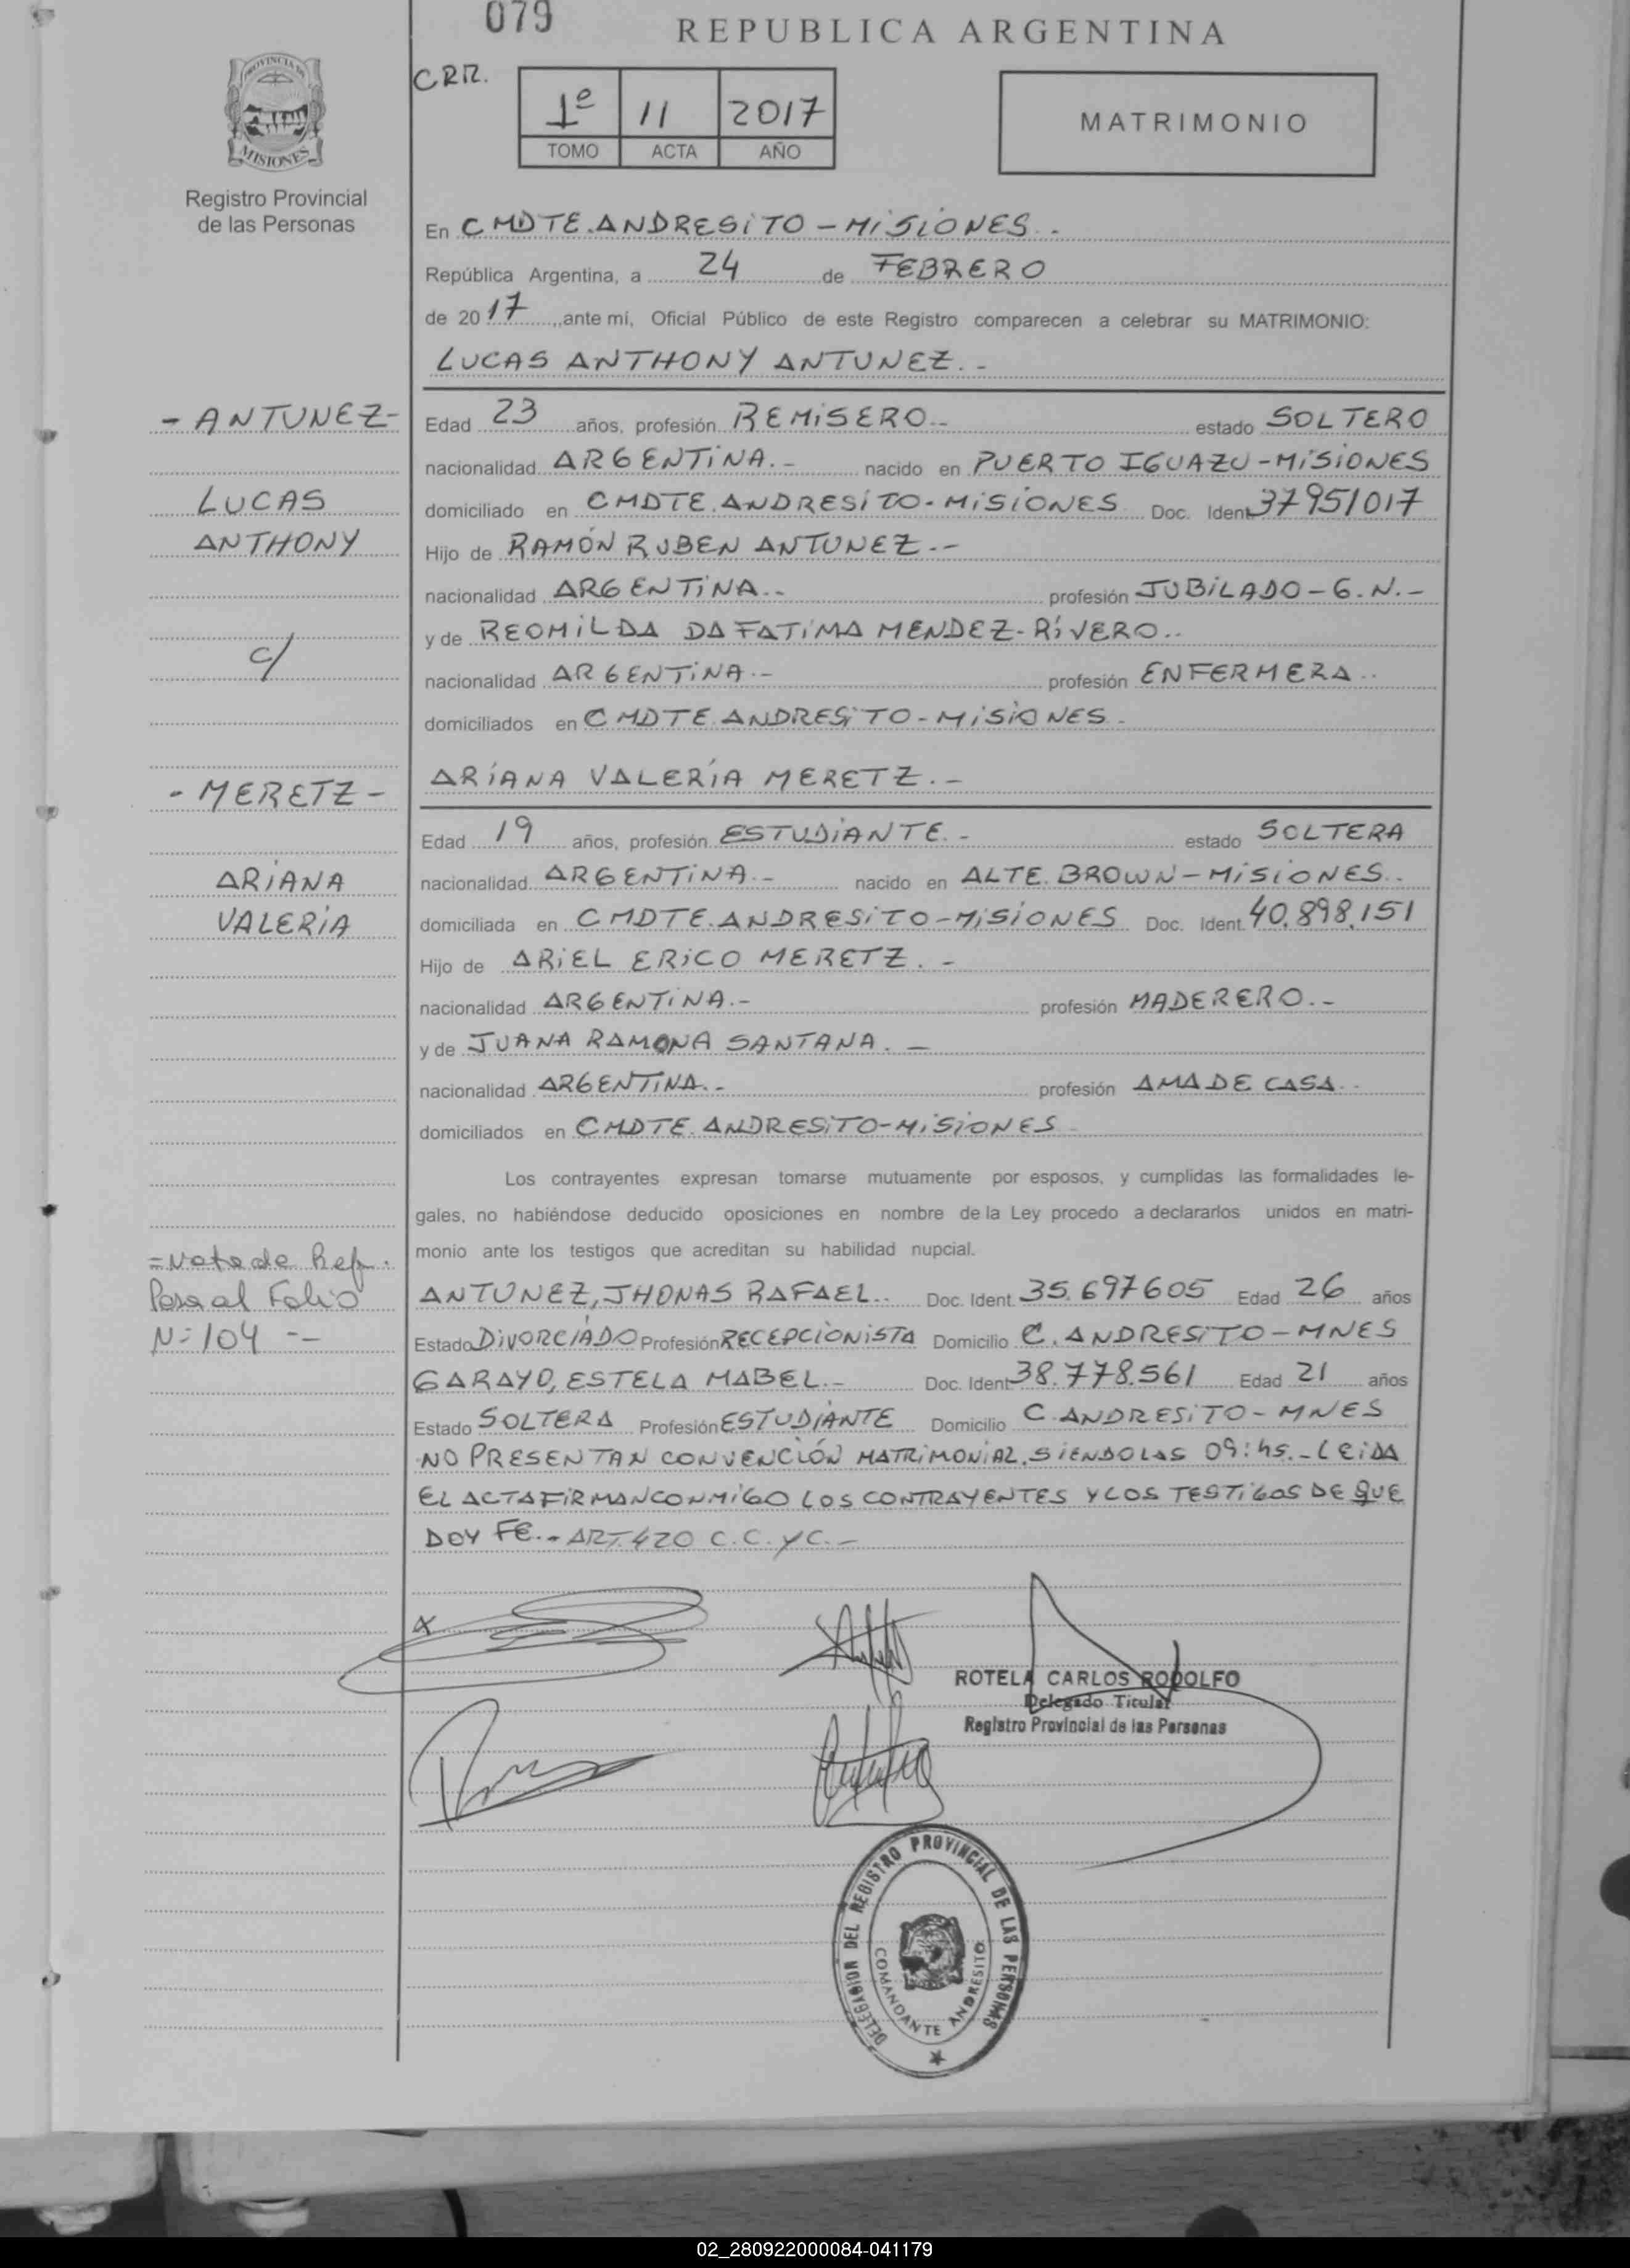 079
REPUBLICA ARGENTINA
PROVINCIA DE
MISIONES
Registro Provincial
de las Personas
CRR.
1º 11 2017
TOMO ACTA AÑO
MATRIMONIO
En CMDTE.ANDRESITO - MISIONES..
República Argentina, a 24 de FEBRERO
de 2017, ante mí, Oficial Público de este Registro comparecen a celebrar su MATRIMONIO:
LUCAS ANTHONY ANTUNEZ.-
- ANTUNEZ-
Edad 23 años, profesión REMISERO.- estado SOLTERO
nacionalidad ARGENTINA.- nacido en PUERTO IGUAZU-MISIONES
LUCAS
domiciliado en CMDTE.ANDRESITO-MISIONES Doc. Ident. 37951017
ANTHONY
Hijo de RAMÓN RUBEN ANTUNEZ.-
nacionalidad ARGENTINA.- profesión JUBILADO-G.N.-
y de REOMILDA DA FATIMA MENDEZ-RIVERO..
c/
nacionalidad ARGENTINA.- profesión ENFERMERA..
domiciliados en CMDTE.ANDRESITO-MISIONES.-
ARIANA VALERIA MERETZ.-
- MERETZ -
Edad 19 años, profesión ESTUDIANTE.- estado SOLTERA
ARIANA
nacionalidad ARGENTINA.- nacido en ALTE.BROWN-MISIONES..
VALERIA
domiciliada en CMDTE.ANDRESITO-MISIONES Doc. Ident. 40.898.151
Hijo de ARIEL ERICO MERETZ.-
nacionalidad ARGENTINA.- profesión MADERERO.-
y de JUANA RAMONA SANTANA.-
nacionalidad ARGENTINA.- profesión AMA DE CASA..
domiciliados en CMDTE.ANDRESITO-MISIONES
Los contrayentes expresan tomarse mutuamente por esposos, y cumplidas las formalidades le-
gales, no habiéndose deducido oposiciones en nombre de la Ley procedo a declararlos unidos en matri-
monio ante los testigos que acreditan su habilidad nupcial.
=Nota de Ref.
Pasa al Folio
Nº 104 --
ANTUNEZ, JHONAS RAFAEL.. Doc. Ident. 35.697605 Edad 26 años
Estado DIVORCIADO Profesión RECEPCIONISTA Domicilio C. ANDRESITO-MNES
GARAYO, ESTELA MABEL.- Doc. Ident. 38.778.561 Edad 21 años
Estado SOLTERA Profesión ESTUDIANTE Domicilio C. ANDRESITO-MNES
NO PRESENTAN CONVENCIÓN MATRIMONIAL. SIENDO LAS 09:hs.-LEIDA
EL ACTA FIRMAN CONMIGO LOS CONTRAYENTES Y LOS TESTIGOS DE QUE
DOY FE.- ART.420 C.C.yC.-
ROTELA CARLOS RODOLFO
Delegado Titular
Registro Provincial de las Personas
DELEGACION DEL REGISTRO PROVINCIAL DE LAS PERSONAS
COMANDANTE ANDRESITO
02_280922000084-041179